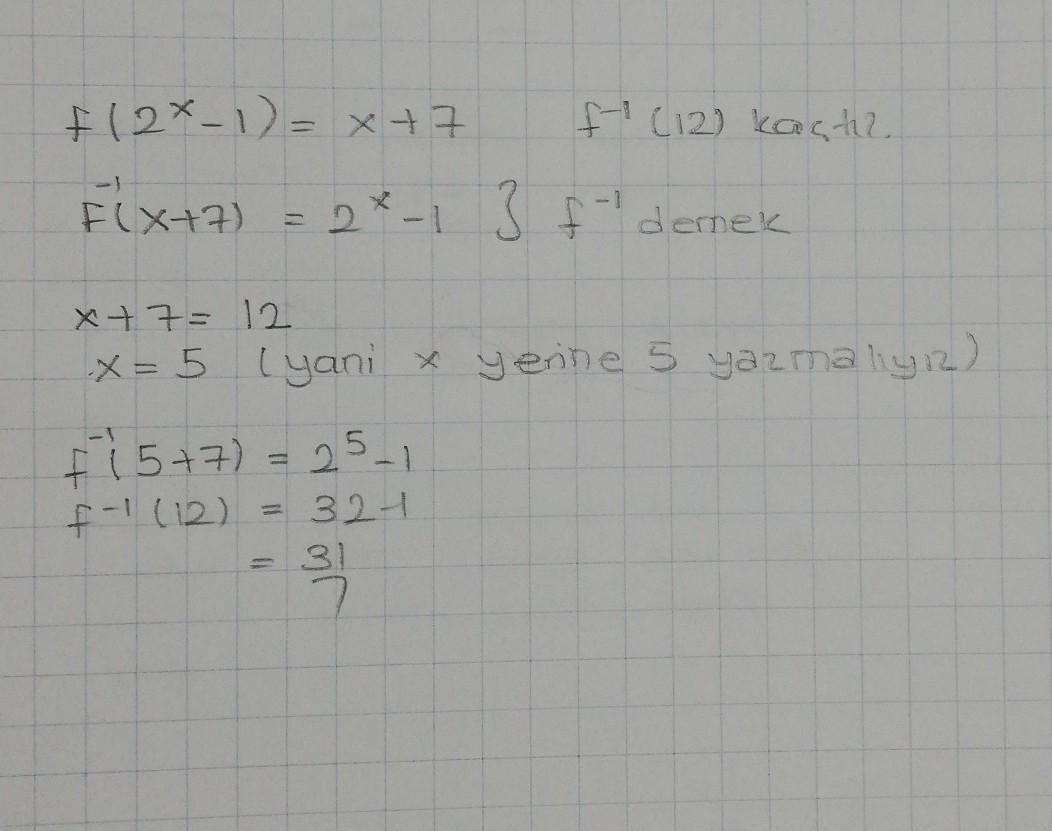 f(2ˣ-1) = x+7 f⁻¹(12) kaçtır?
f⁻¹(x+7) = 2ˣ-1 } f⁻¹ demek
x+7= 12
x = 5 (yani x yerine 5 yazmalıyız)
f⁻¹(5+7) = 2⁵-1
f⁻¹(12) = 32-1
= 31